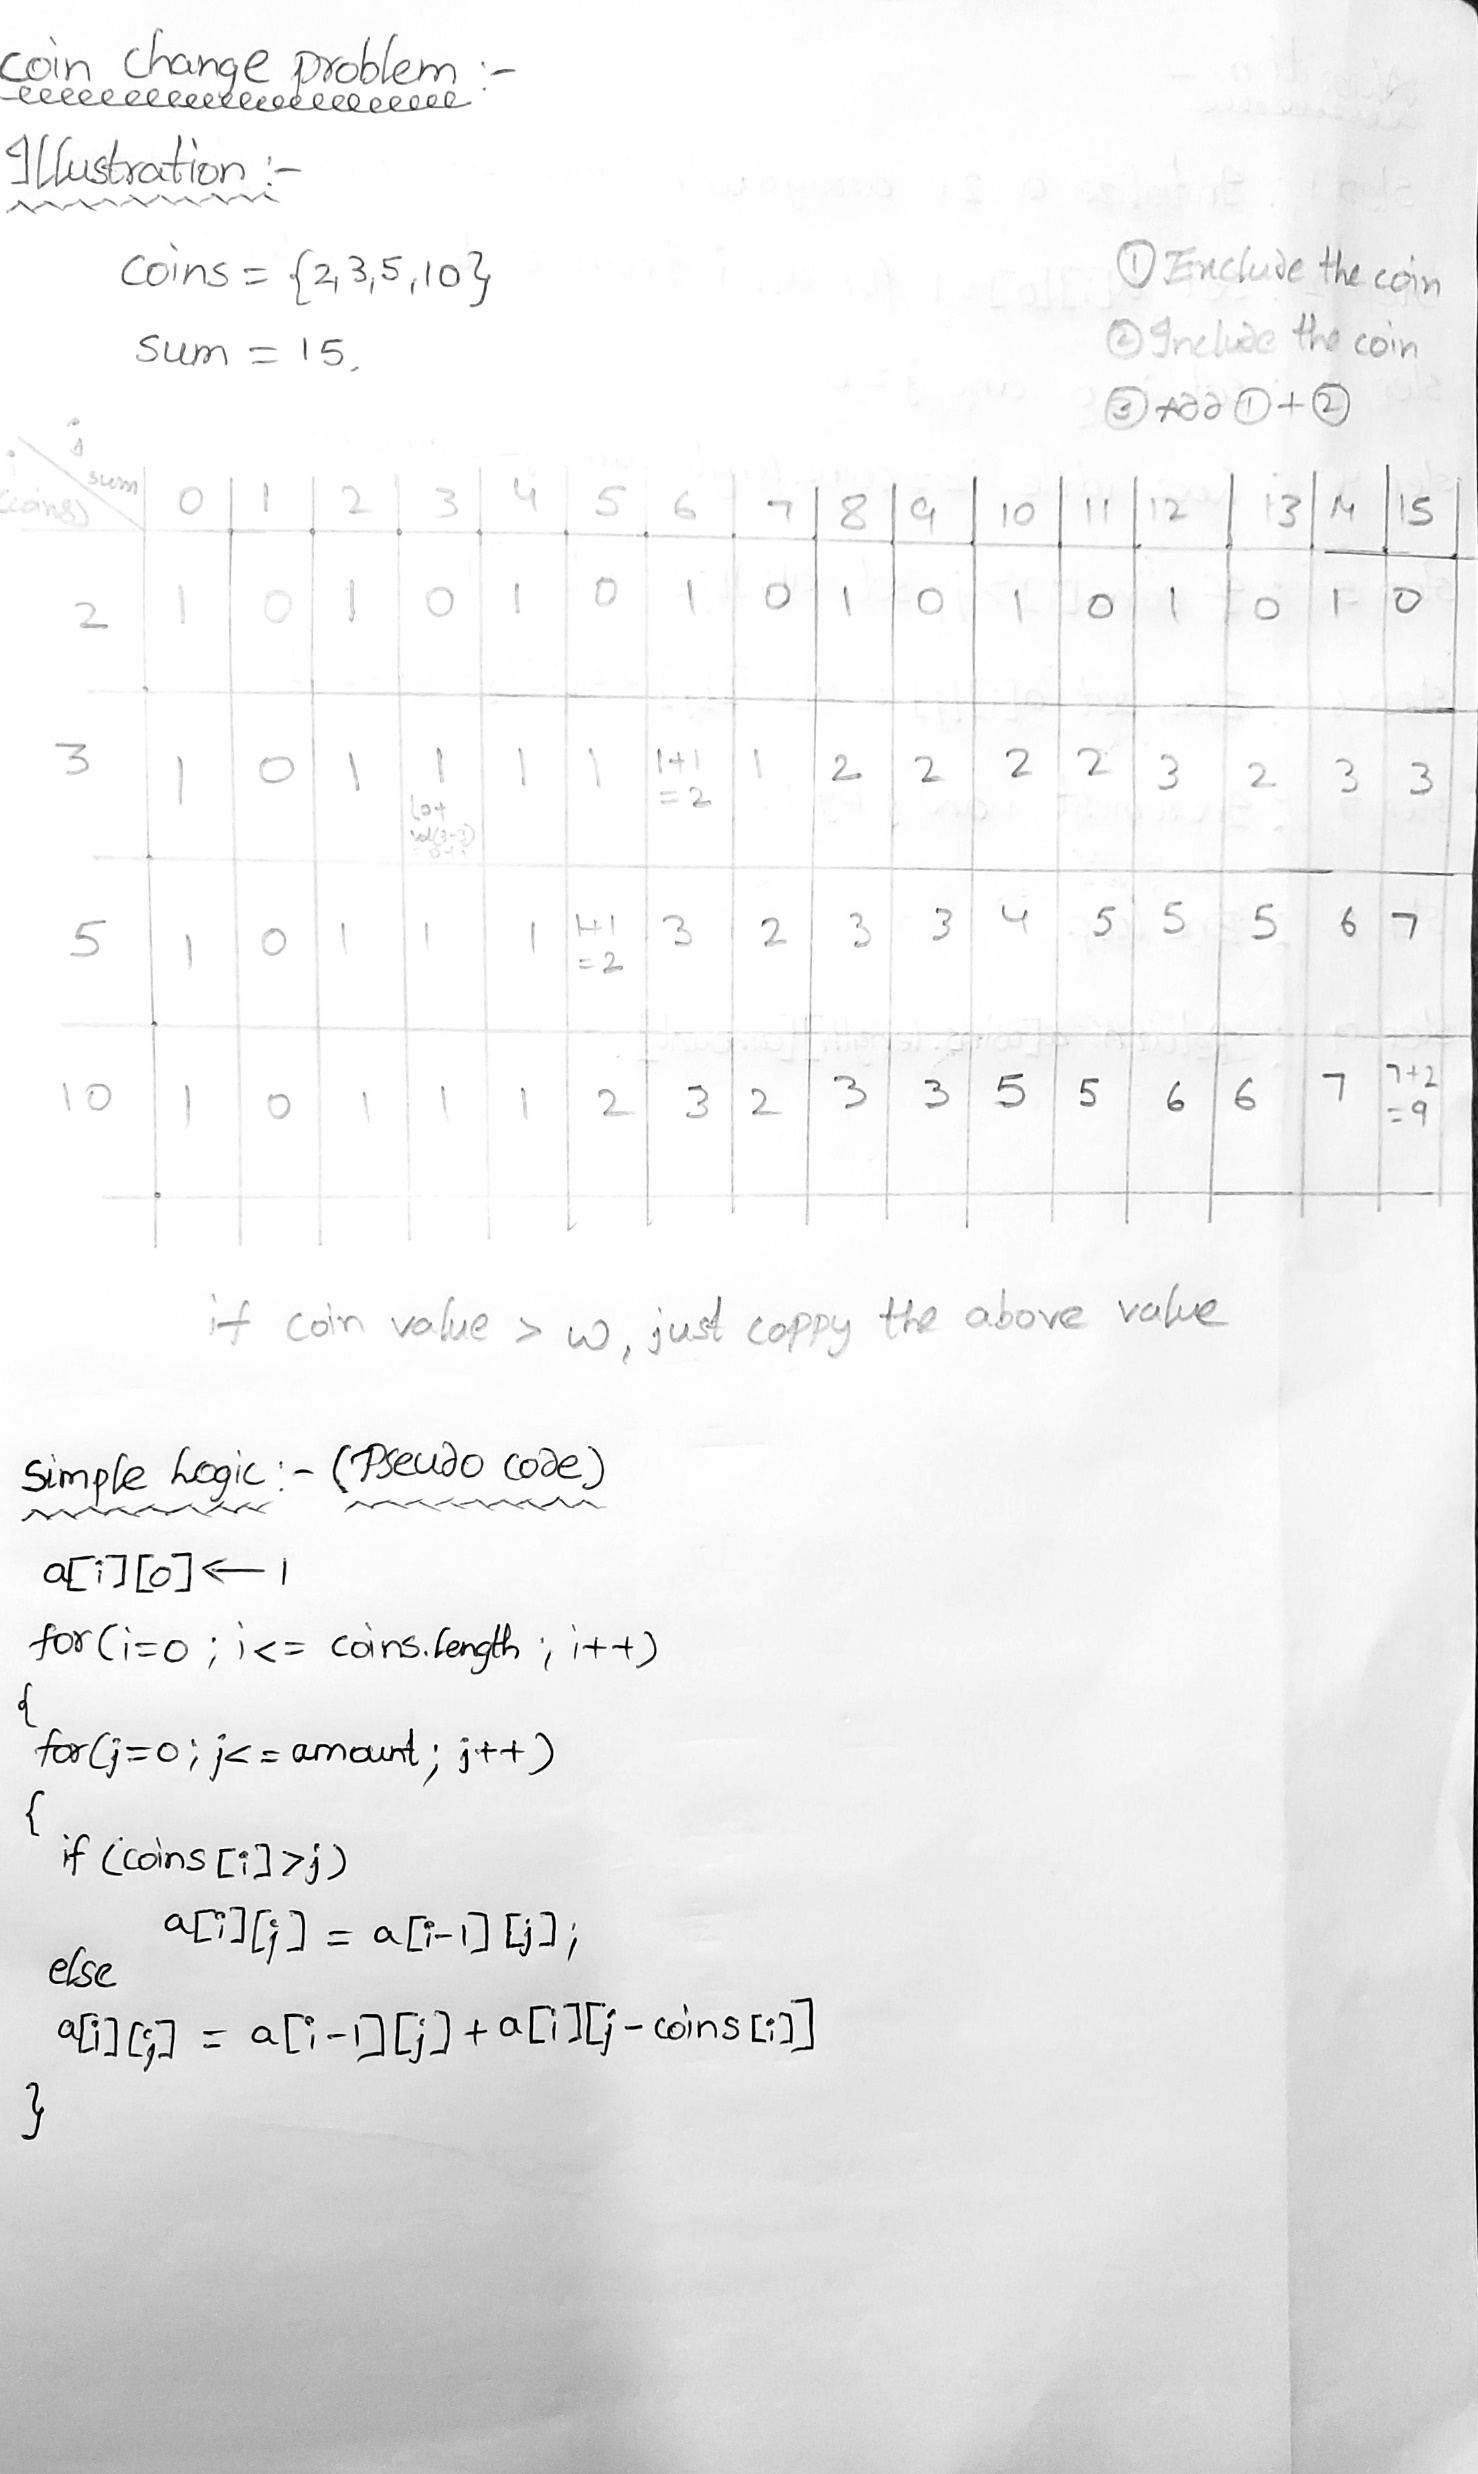 coin change problem :-
Illustration :-
coins = {2,3,5,10}
sum = 15.
① Exclude the coin
② Include the coin
③ Add ①+②
j
i sum
(coins) 0 1 2 3 4 5 6 7 8 9 10 11 12 13 14 15
2 1 0 1 0 1 0 1 0 1 0 1 0 1 0 1 0
3 1 0 1 1 1 1 1+1 =2 1 2 2 2 2 3 2 3 3
5 1 0 1 1 1 1+1 =2 3 2 3 3 4 5 5 5 6 7
10 1 0 1 1 1 2 3 2 3 3 5 5 6 6 7 7+2 =9
if coin value > w, just coppy the above value
Simple Logic :- (Pseudo code)
a[i][0] ← 1
for (i=0 ; i<= coins.length ; i++)
{
for(j=0; j<=amount; j++)
{
if (coins[i]>j)
a[i][j] = a[i-1][j];
else
a[i][j] = a[i-1][j]+a[i][j-coins[i]]
}